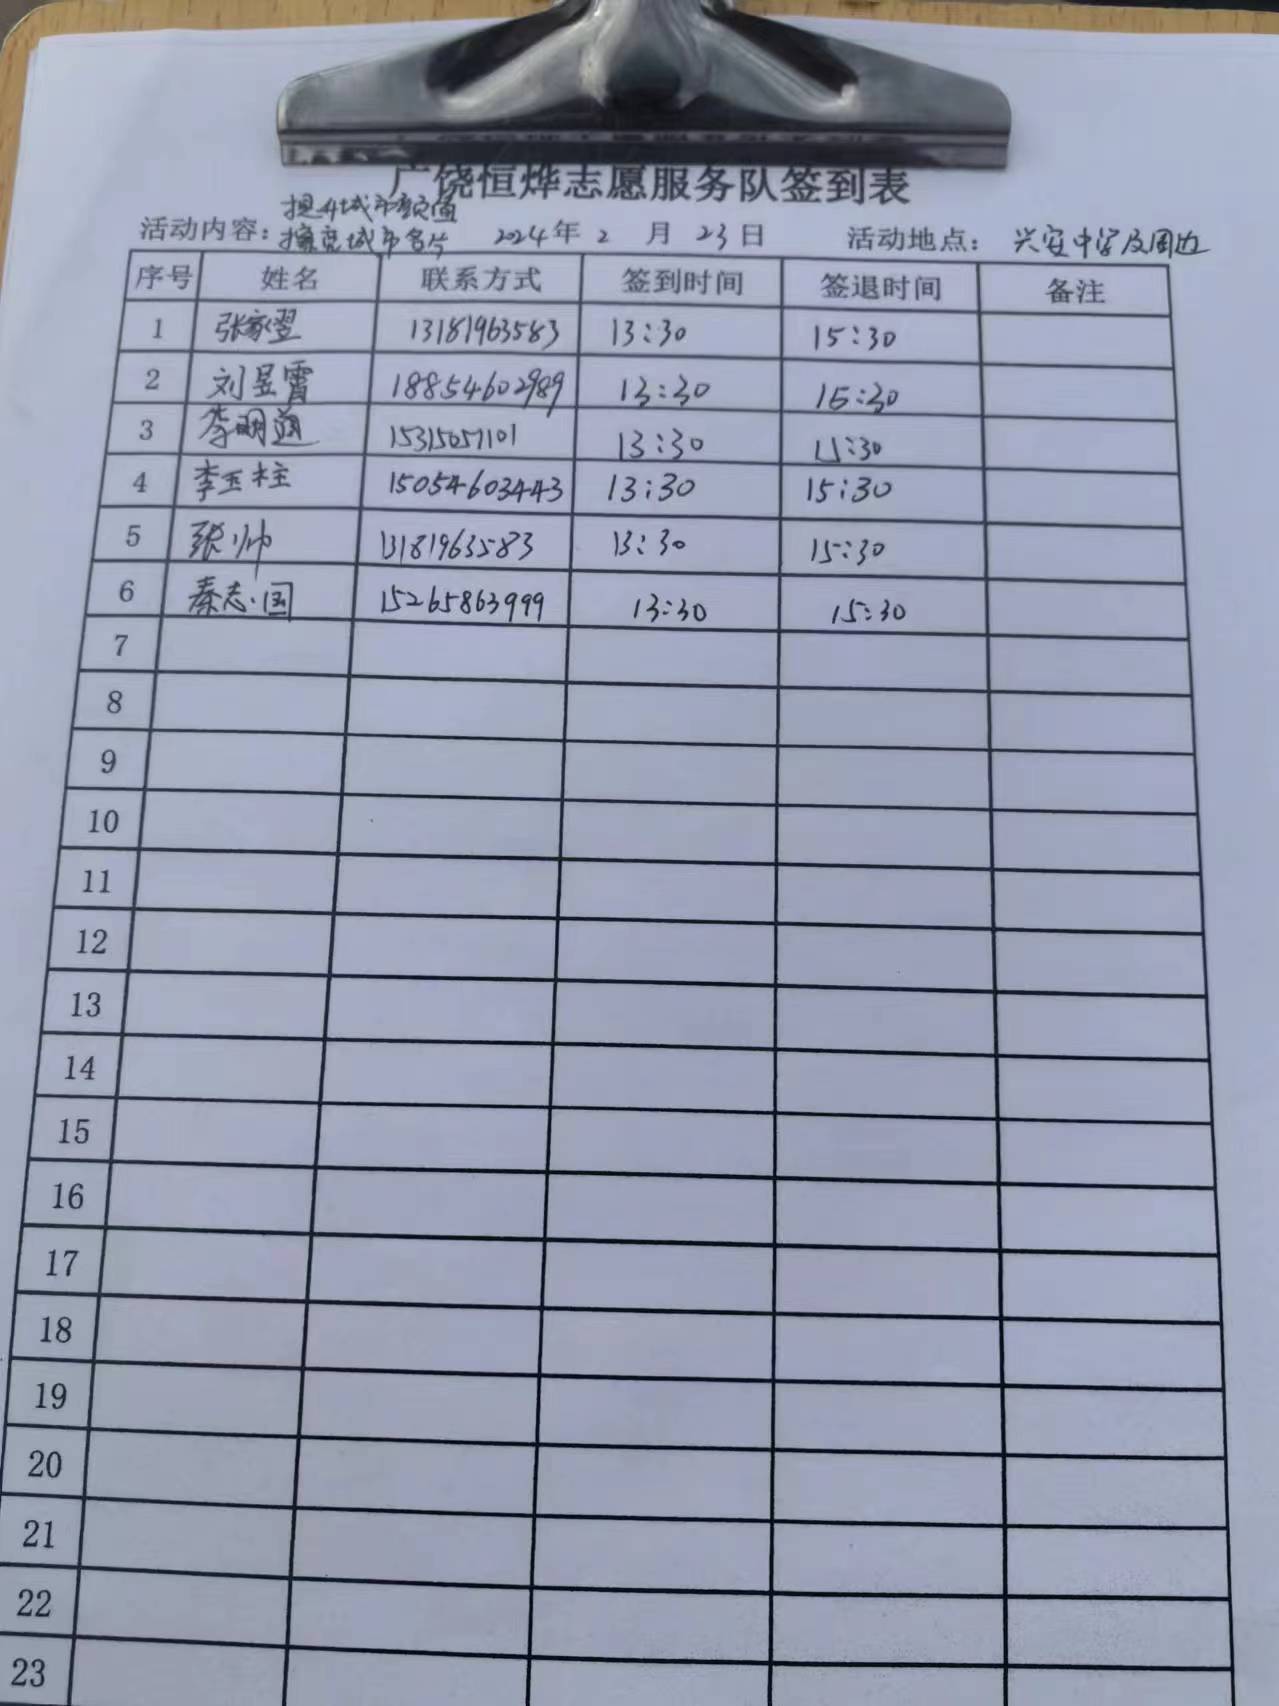 广饶恒烨志愿服务队签到表
活动内容：提升城市颜值 擦亮城市名片 2024年 2 月 23日 活动地点： 兴安中学及周边
序号 姓名 联系方式 签到时间 签退时间 备注
1 张家翌 13181963583 13:30 15:30
2 刘昱霄 18854602989 13:30 15:30
3 李明道 15315057101 13:30 15:30
4 李玉柱 15054603443 13:30 15:30
5 张帅 13181963583 13:30 15:30
6 秦志国 15265863999 13:30 15:30
7
8
9
10
11
12
13
14
15
16
17
18
19
20
21
22
23